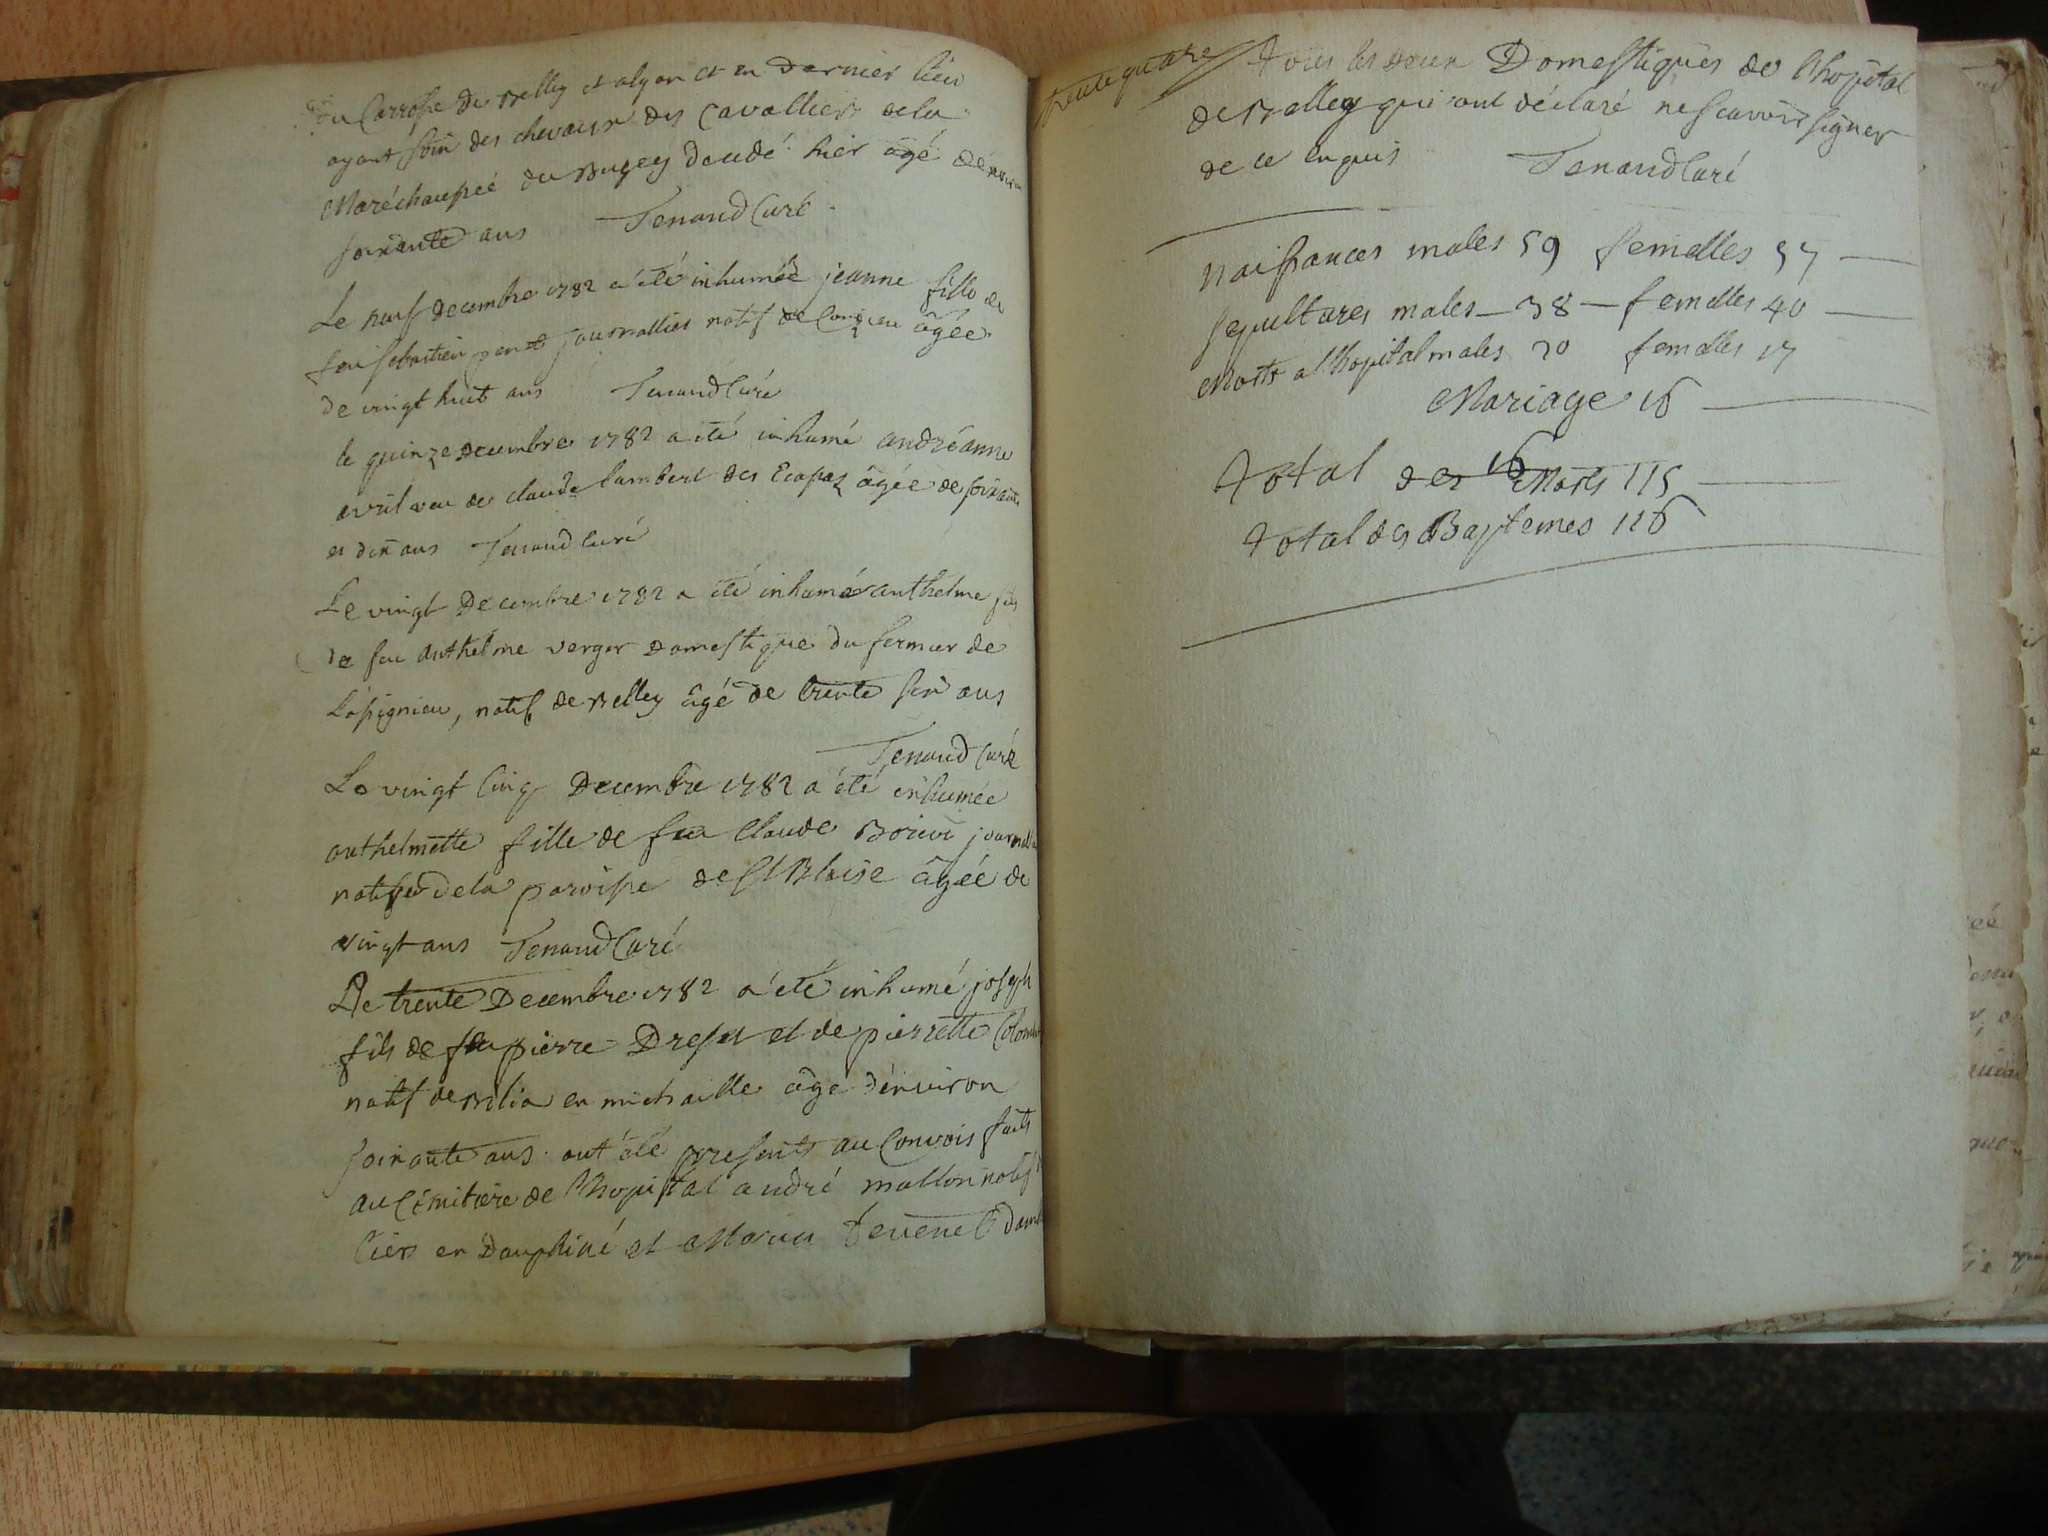 du Carrosse de Belley et a lyon et en dernier lieu
ayant soin des chevaux des Cavalliers de la
Maréchaussée du Bugey décédé hier agé denviron
soixante ans Tenand Curé
Le neuf decembre 1782 a été inhumée jeanne fille de
feu sebastien journallier natif de âgée
de vingt huit ans Tenand Curé
le quinze decembre 1782 a été inhumé andréanne
avril veu de claude lambert des Ecassaz âgée de soixante
et dix ans Tenand curé
Le vingt Decembre 1782 a été inhumé anthelme fils
de feu Anthelme verger domestique du fermier de
natif de Belley âgé de trente six ans
Tenand Curé
Le vingt Cinq Decembre 1782 a été inhumée
anthelmette fille de feu Claude
native de la paroisse de St Blaise âgée de
vingt ans Tenand Curé
Le trente Decembre 1782 a été inhumé joseph
fils de feu pierre et de pierrette
natif de Bilia en michaille âgé d'environ
soixante ans. ont été presents au Convois faits
au Cimitiere de l'hopistal andré natif
en Dauphiné et
trente quatre
tous les deux Domestiques de l'hopital
de Belley qui ont déclaré ne scavoir signer
de ce enquis Tenand Curé
Naissances males 59 femelles 57
sepultures males 38 femelles 40
Morts a l'hopital males 20 femelles 17
Mariage 16
total des 16 Morts 115
total des Baptemes 116